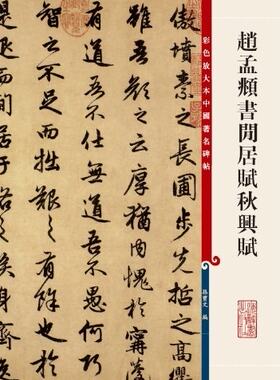 趙孟頫書閒居賦秋興賦
彩色放大本中國著名碑帖
孫寶文 編
傲墳素之長圃步先哲之高衢
雖吾顏之云厚猶内愧於甯蘧
有道吾不仕無道吾不愚何巧
智之不足而拙艱之有餘也於
之涘身齊